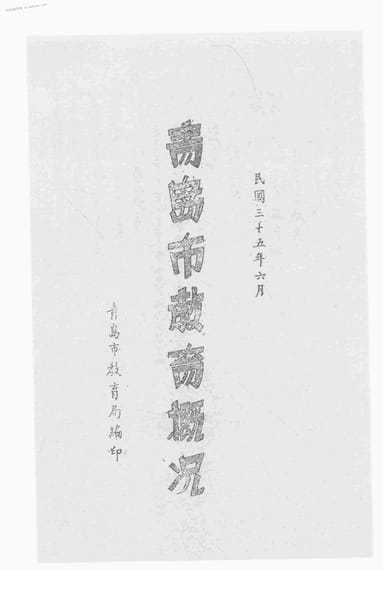 民國三十五年六月
青島市教育概況
青島市教育局編印